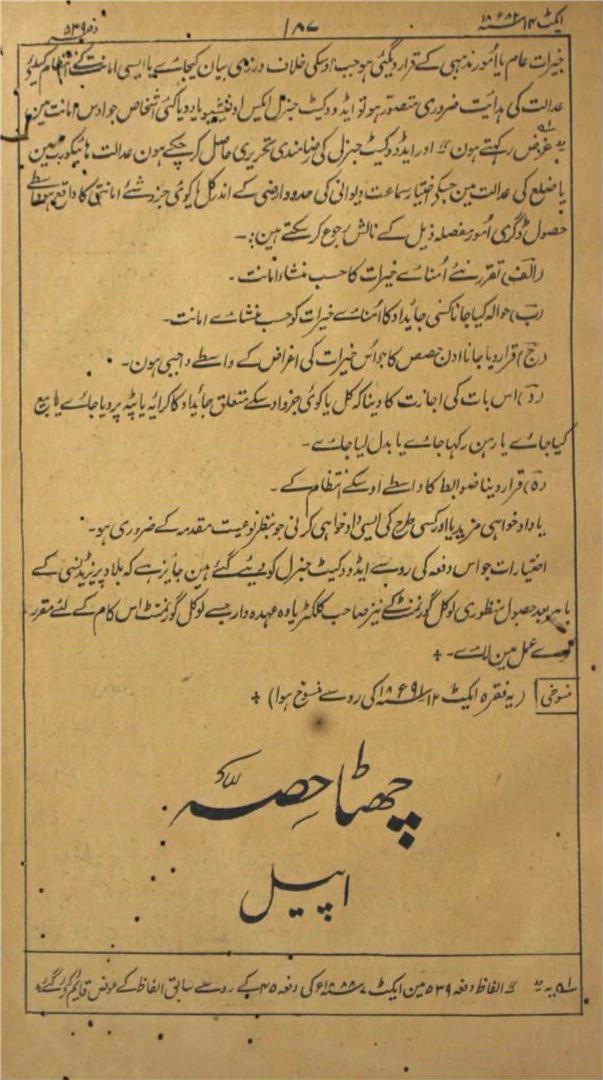 ایکٹ ۱۴ سنہ ۱۸۸۲ع ۱۸۷ دفعہ ۵۳۹
خیرات عام یا امور مذہبی کے قرار دیگئی ہو جب اوسکی خلاف ورزی بیان کیجاے یا ایسی امانت کے انتظام کیلیے
عدالت کی ہدایت ضروری متصور ہو تو ایڈوکیٹ جنرل ایکس افیشیو یا دو یا کئی اشخاص جو اوس امانت مین
بہ غرض رکہتے ہون ؎ اور ایڈووکیٹ جنرل کی رضامندی تحریری حاصل کر چکے ہون عدالت ہائیکورٹ مین
یا ضلع کی عدالت مین جسکے اختیار سماعت دیوانی کی حدود ارضی کے اندر کل یا کوئی جزو شئے امانتی کا واقع ہو واسطے
حصول ڈگری امور مفصلہ ذیل کے نالش رجوع کر سکتے ہین:۔
(الف) تقرر نئے اُمناے خیرات کا حسب منشاء امانت ۔
(ب) حوالہ کیا جانا کسی جائداد کا اُمناے خیرات کو حسب منشاے امانت۔
(ج) قرار دیا جانا اون حصص کا جو اُس خیرات کی اغراض کے واسطے واجبی ہون۔
(د) اس بات کی اجازت کا دینا کہ کل یا کوئی جزو اوسکے متعلق جائداد کا کرایہ یا پٹہ پر دیا جاے یا بیع
کیا جاے یا رہن رکہا جاے یا بدل لیا جاے۔
(ہ) قرار دینا ضوابط کا واسطے اوسکے انتظام کے ۔
یا داد خواہی مزید یا اور کسی طرح کی ایسی داد خواہی کرنی جو بنظر نوعیت مقدمہ کے ضروری ہو۔
اختیارات جو اس دفعہ کی رو سے ایڈووکیٹ جنرل کو دیئے گئے ہین جایز ہے کہ بلاد پریزیڈنسی کے
باہر بعد حصول منظوری لوکل گورنمنٹ کے نیز صاحب کلکٹر یا وہ عہدہ دار جسے لوکل گورنمنٹ اس کام کے لئے مقرر
کرے عمل مین لاے۔ ÷
منسوخی (یہ فقرہ ایکٹ ۱۲ سنہ ۱۸۹۱ع کی رو سے منسوخ ہوا) ÷
چھٹا حِصہ
اپیل
؎ بہ بہ ؎ الفاظ دفعہ ۵۳۹ مین ایکٹ ۷ سنہ ۱۸۸۸ع کی دفعہ ۴۵ کے رو سے سابق الفاظ کے عوض قایم کر دئے گئے